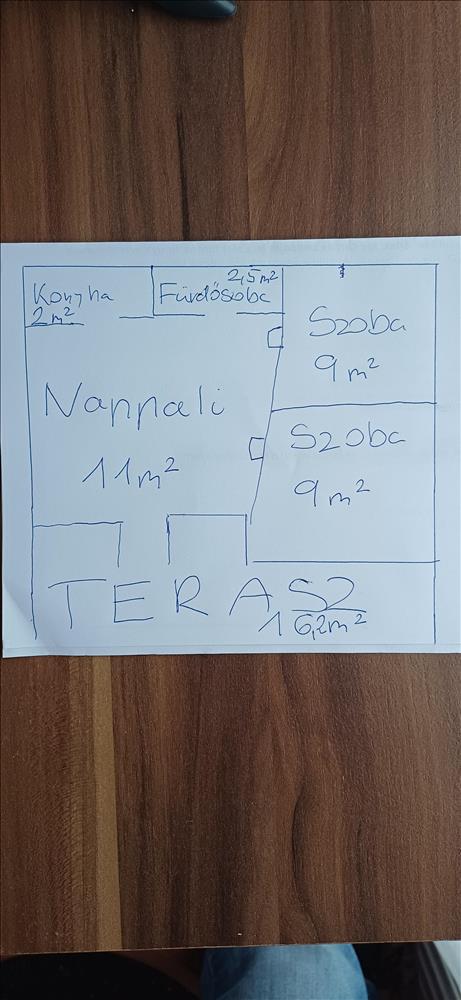 Konyha
2m²
2,5m²
Fürdőszoba
Szoba
9m²
Nappali
11m²
Szoba
9m²
TERASZ
16,2m²